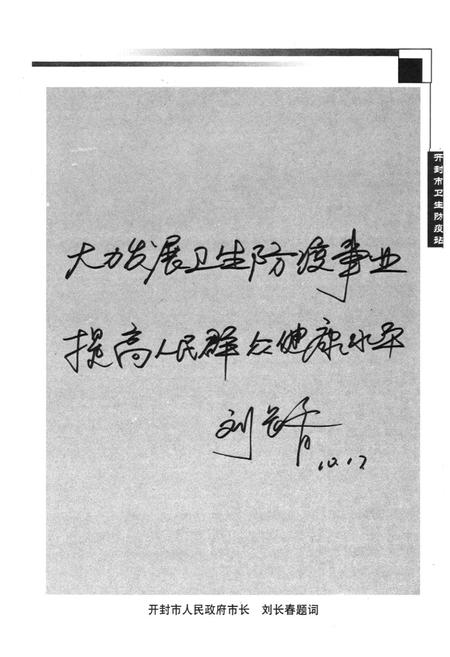 开封市卫生防疫站
大力发展卫生防疫事业
提高人民群众健康水平
刘长春
10.17
开封市人民政府市长 刘长春题词